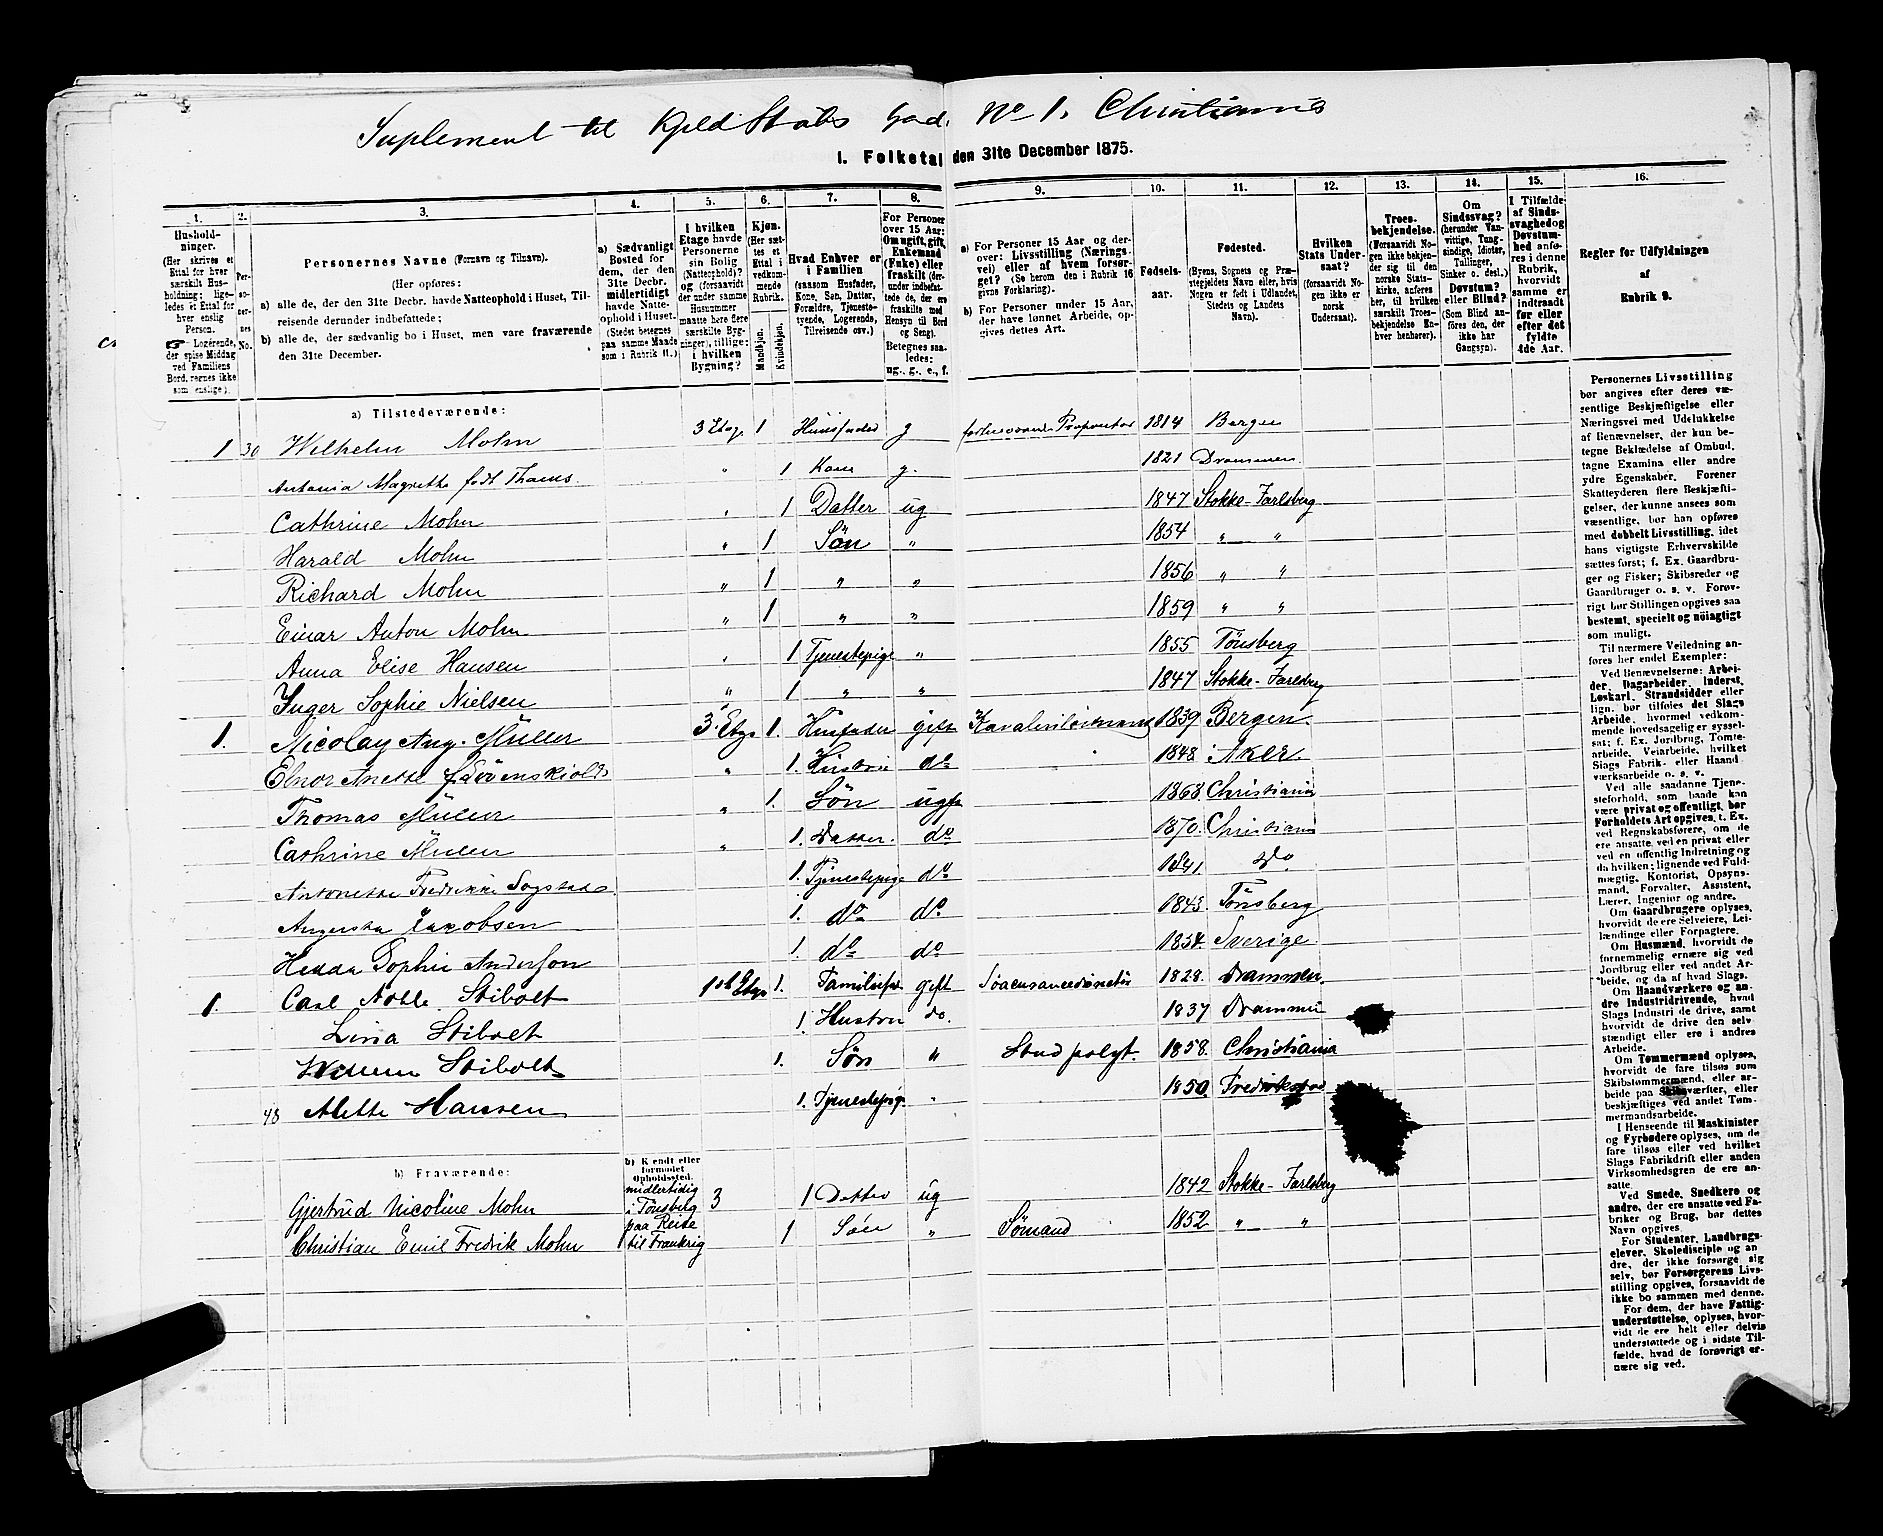 Suplement til Kjeld Stubs Gad. No 1. Christiania
I. Folketal den 31te December 1875.
1. 2. 3. 4. 5. 6. 7. 8. 9. 10. 11. 12. 13. 14. 15. 16.
1.
Hushold-
ninger.
(Her skrives et
Ettal for hver
særskilt Hus-
holdning; lige-
ledes et Ettal for
hver enslig
Person.
Logerende,
der spise Middag
ved Familiens
Bord, regnes ikke
som enslige).
2.
Per-
so-
ner-
nes
No.
3.
Personernes Navne (Fornavn og Tilnavn).
(Her opføres:
a) alle de, der den 31te Decbr. havde Natteophold i Huset, Til-
reisende derunder indbefattede;
b) alle de, der sædvanlig bo i Huset, men vare fraværende
den 31te December.
4.
a) Sædvanligt
Bosted for
dem, der den
31te Decbr.
midlertidigt
havde Natte-
ophold i Huset.
(Stedet betegnes
paa samme Maade
som i Rubrik 11.)
5.
I hvilken
Etage havde
Personerne
sin Bolig
(Natteophold)?
og (forsaavidt
der under samme
Husnummer
maatte høre flere
særskilte Byg-
ninger), tillige:
i hvilken
Bygning?
6.
Kjøn.
(Her sæt-
tes et
Ettal i
vedkom-
mende
Rubrik.
Mandkjøn.
Kvindekjøn.
7.
Hvad Enhver er
i Familien
(saasom Husfader,
Kone, Søn, Datter,
Forældre, Tjeneste-
tyende, Logerende,
Tilreisende osv.)
8.
For Personer
over 15 Aar:
Om ugift, gift,
Enkemand
(Enke) eller
fraskilt (der-
under indbefat-
tede de, der ere
fraskilte med
Hensyn til Bord
og Seng).
Betegnes saa-
ledes:
ug., g., e., f.
9.
a) For Personer 15 Aar og der-
over: Livsstilling (Nærings-
vei) eller af hvem forsør-
get? (Se herom den i Rubrik 16
givne Forklaring).
b) For Personer under 15 Aar,
der have lønnet Arbeide, op-
gives dettes Art.
10.
Fødsels-
aar.
11.
Fødested.
(Byens, Sognets og Præ-
stegjeldets Navn eller, hvis
Nogen er født i Udlandet,
Stedets og Landets
Navn).
12.
Hvilken
Stats Under-
saat?
(forsaavidt No-
gen ikke er
norsk
Undersaat).
13.
Troes-
bekjendelse.
(Forsaavidt No-
gen ikke bekjen-
der sig til den
norske Stats-
kirke, anføres
her, til hvilken
særskilt Troes-
bekjendelse En-
hver henhører).
14.
Om
Sindssvag?
(herunder Van-
vittige, Tung-
sindige, Idioter,
Tullinger,
Sinker o. desl.)
Døvstum?
eller Blind?
(Som Blind an-
føres den, der
ikke har
Gangsyn).
15.
I Tilfælde
af Sinds-
svaghed og
Døvstum-
hed anfø-
res i denne
Rubrik,
hvorvidt
samme er
indtraadt
før eller
efter det
fyldte
4de Aar.
16.
Regler for Udfyldningen
af
Rubrik 9.
a) Tilstedeværende:
1 30 Wilhelm Mohn 3 Etag. 1 Huusfader g forhenværende Proprietær 1814 Bergen
Antonia Magrethe født Thams " 1 Kone g. 1821 Drammen
Cathrine Mohn " 1 Datter ug 1847 Stokke-Jarlsberg
Harald Mohn " 1 Søn " 1854 " "
Richard Mohn " 1 " " 1856 " "
Einar Anton Mohn " 1 " " 1859 " "
Anna Elise Hansen " 1 Tjenestepige " 1855 Tönsberg
Inger Sophie Nielsen " 1 " " 1847 Stokke-Jarlsberg
1. Nicolay Aug. Müller 3. Etge 1. Husfader gift 1839 Bergen
" 1. Hustru do 1848 Aker
Thomas Müller " 1. Søn ugft 1868 Christiania
Cathrine Müller " 1. Datter. do 1870. Christiania
Antonette Fredrikke Sogstad 1. Tjenestepige do 1841. Do.
Augusta Jakobsen 1. do do 1843. Tönsberg
Hedda Sophie Anderson 1. do do 1854. Sverige.
1. Carl Nolle Stibolt 1ste Etge 1. gift 1828. Drammen.
Lina Stibolt 1. Hustru do. 1837 Drammen
Stibolt 1. Søn " Stud polyt. 1858. Christiania
48 Mette Hansen 1. Tjenestepige " 1850. Fredrikstad
b) Fraværende:
b) Kjendt eller
formodet
Opholdssted.
Gjertrud Nicoline Mohn midlertidig i Tönsberg 3 1 Datter ug 1842 Stokke-Jarlsberg
Christian Emil Fredrik Mohn paa Reise til Frankrig 1 Søn " Sømand 1852 " "
Personernes Livsstilling
bør angives efter deres væ-
sentlige Beskjæftigelse eller
Næringsvei med Udelukkelse
af Benævnelser, der kun be-
tegne Beklædelse af Ombud,
tagne Examina eller andre
ydre Egenskaber. Forener
Skatteyderen flere Beskjæfti-
gelser, der kunne ansees som
væsentlige, bør han opføres
med dobbelt Livsstilling, idet
hans vigtigste Erhvervskilde
sættes først; f. Ex. Gaardbru-
ger og Fisker; Skibsreder og
Gaardbruger o. s. v. Forøv-
rigt bør Stillingen opgives saa
bestemt, specielt og nöiagtigt
som muligt.
Til nærmere Veiledning an-
føres her endel Exempler:
Ved Benævnelserne: Arbei-
der, Dagarbeider, Inderst,
Løskarl, Strandsidder eller
lign. bør tilføies det Slags
Arbeide, hvormed vedkom-
mende hovedsagelig er syssel-
sat; f. Ex. Jordbrug, Tomte-
arbeide, Veiarbeide, hvilket
Slags Fabrik- eller Haand-
værksarbeide o. s. v.
Ved alle saadanne Tjene-
steforhold, som baade kan
være privat og offentligt, bør
Forholdets Art opgives, t. Ex.
ved Regnskabsførere, om de
ere ansatte ved en privat eller
ved en offentlig Indretning og
da hvilken; lignende ved Fuld-
mægtig, Kontorist, Opsyns-
mand, Forvalter, Assistent,
Lærer, Ingeniør og andre.
Om Gaardbrugere oplyses,
hvorvidt de ere Selveiere, Lei-
lændinge eller Forpagtere.
Om Husmænd, hvorvidt de
fornemmelig ernære sig ved
Jordbrug eller ved andet Ar-
beide, og da af hvad Slags.
Om Haandværkere og an-
dre Industridrivende, hvad
Slags Industri de drive, samt
hvorvidt de drive den selv-
stændigt eller ere i andres
Arbeide.
Om Tømmermænd oplyses,
hvorvidt de fare tilsøs som
Skibstømmermænd, eller ar-
beide paa Skibsværfter, eller
beskjæftiges ved andet Tøm-
mermandsarbeide.
I Henseende til Maskinister
og Fyrbødere oplyses, om de
fare tilsøs eller ved hvilket
Slags Fabrikdrift eller anden
Virksomhedsgren de ere an-
satte.
Ved Smede, Snedkere og
andre, der ere ansatte ved Fa-
briker og Brug, bør dettes
Navn opgives.
For Studenter, Landbrugs-
elever, Skoledisciple og an-
dre, der ikke forsørge sig
selv, bør Forsørgerens Livs-
stilling opgives, forsaavidt de
ikke bo sammen med denne.
For dem, der have Fattig-
understøttelse, oplyses, hvor-
vidt de ere helt eller delvis
understøttede og i sidste Til-
fælde, hvad de forøvrigt er-
nære sig ved.